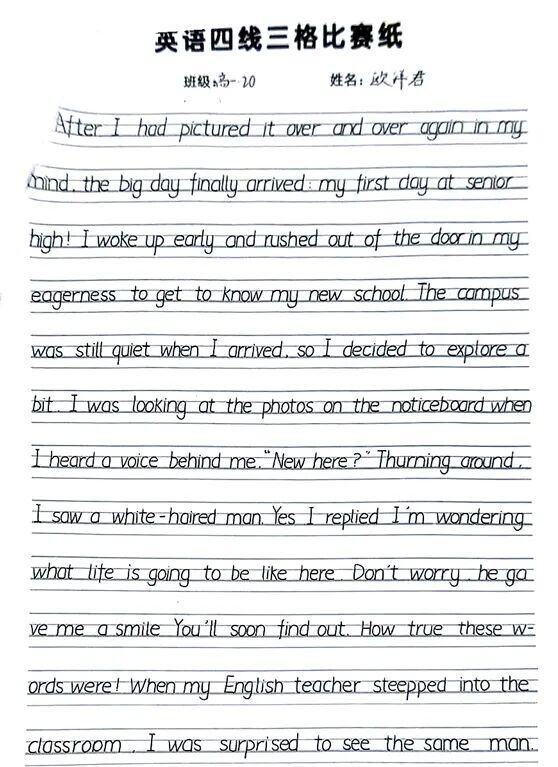 英语四线三格比赛纸
班级:高一.20 姓名:欧洋君
After I had pictured it over and over again in my
mind, the big day finally arrived: my first day at senior
high! I woke up early and rushed out of the door in my
eagerness to get to know my new school. The campus
was still quiet when I arrived, so I decided to explore a
bit. I was looking at the photos on the noticeboard when
I heard a voice behind me. "New here?" Thurning around,
I saw a white-haired man. Yes I replied I'm wondering
what life is going to be like here. Don't worry, he ga
ve me a smile You'll soon find out. How true these w-
ords were! When my English teacher steepped into the
classroom, I was surprised to see the same man.